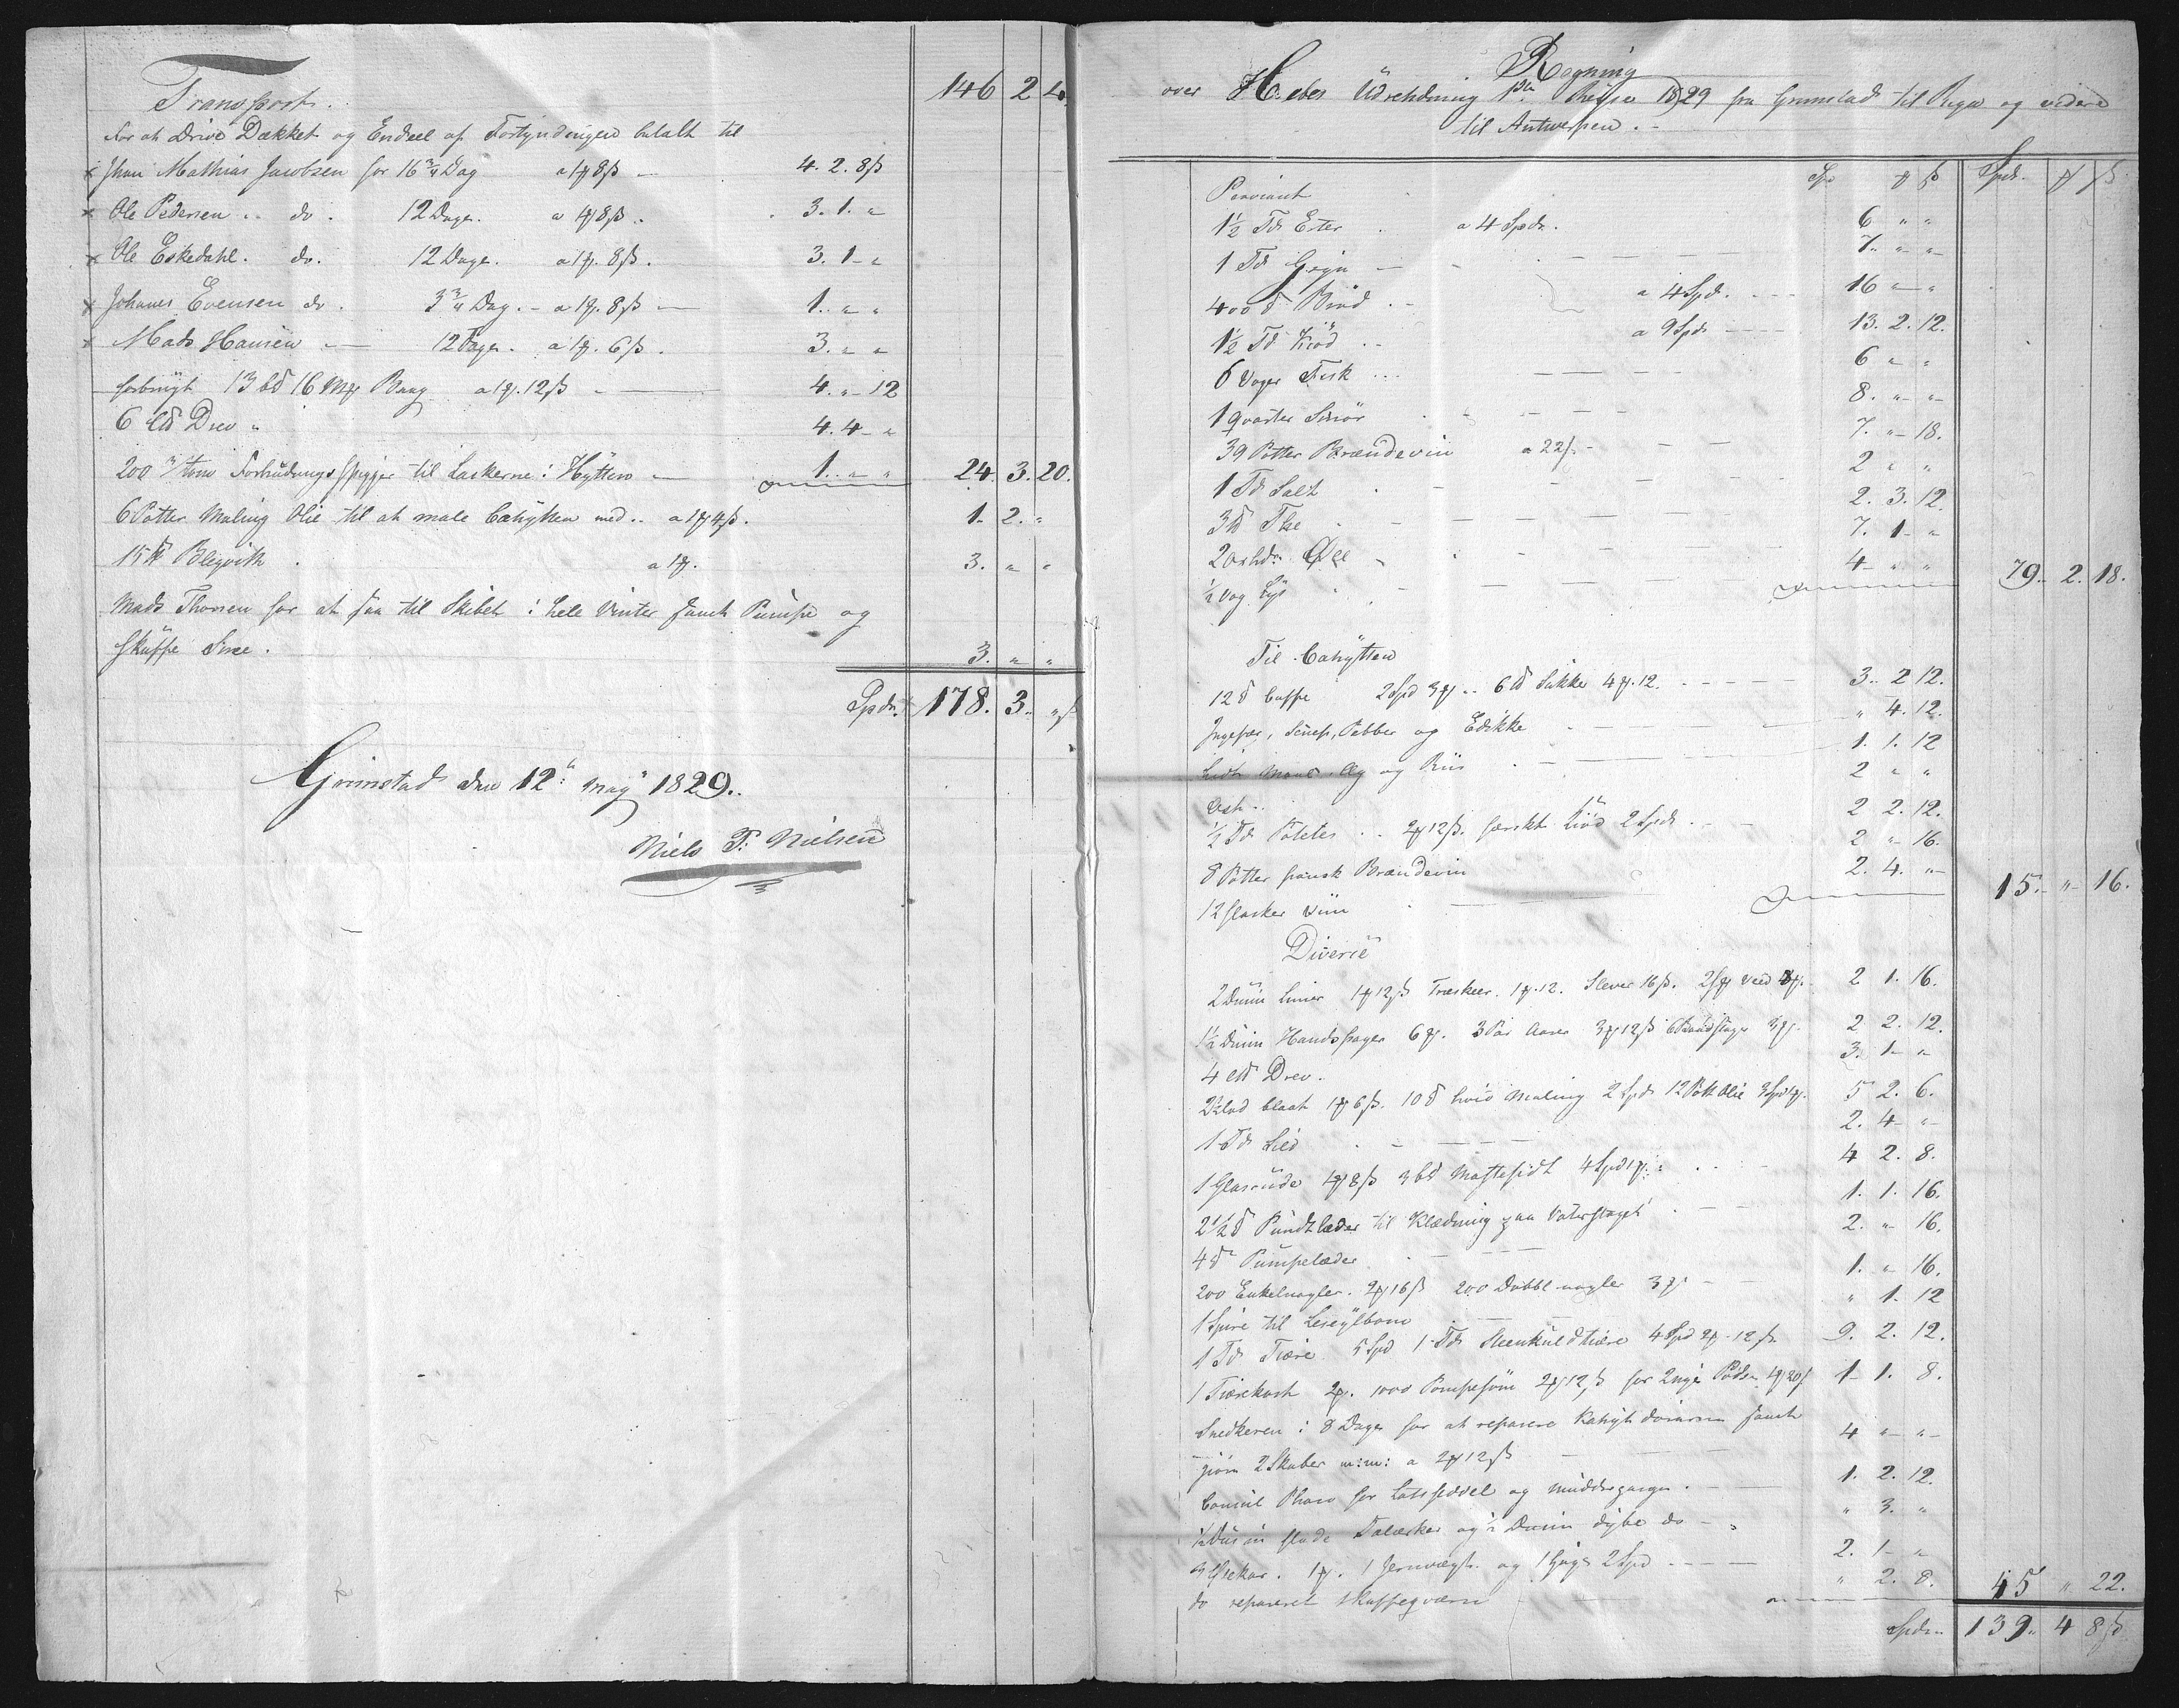 Transport. 146 2 4.
For at Drive Dækket og Endeel af Fortyndingen betalt til
x Jhan Mathias Jacobsen for 16 3/4 Dag a 1 ꝟ 8 ß — 4. 2. 8 ß
x Ole Pedersen .. do. 12 Dage. a 1 ꝟ 8 ß. 3. 1. "
x Ole Eskedahl. do. 12 Dage. a 1 ꝟ. 8 ß. 3. 1 - "
x Johanes Evensen do. 3 3/4 Dag. - a 1 ꝟ. 8 ß — 1. " "
x Mads Hansen — 12 Dage. a 1 ꝟ. 6 ß. 3. " "
forbrugt 13 16 Beeg a 1 ꝟ. 12 ß — 4. " - 12
6 Drev " 4. 4 - "
200 Forhudnings Spigger til Laskerne i Hytten — 1. " " 24. 3. 20.
6 Potter Maling Olie til at male Cahytten med .. a 1 ꝟ 4 ß. 1. 2. "
15 ℔ Blegvith . a 1 ꝟ. 3. " "
Mads Thorsen for at saa til Skibet i hele Vinter samt Pumpe og
skuffe Snee. 3. " "
Spdr. 178. 3. " ß
Grimstad den 12te May 1829.
Niels T: Nielsen
Regning
over Hebes Udrehdning 1ste Reyse 1829 fra Grimstad til Riga og videre
til Antwerpen. -
Spd ꝟ ß Spdr. ꝟ ß
Proviant
1 1/2 Td Erter . a 4 Spdr. 6 " "
1 Td Gryn — 7. " "
400 ℔ Brød . - a 4 Spd. 16 " "
1 1/2 Td Kiød .. a 9 Spdr 13. 2. 12.
6 Voger Fisk ... 6 " "
1 Qvarter Smør 8. " "
39 Potter Brændeviin a 22 ß - 7. " - 18.
1 Td Salt 2 " "
3 ℔ The 2. 3. 12.
2 oxhd. Øll 7. 1 - "
1/2 Vog Lys 4 - " " 79. - 2. 18.
Til Cahytten
12 ℔ Caffe 2 Spd 3 ꝟ .. 6 ℔ Sukke 4 ꝟ. 12. 3. 2 12.
Ingefær, Senep, Pebber og Edikke " 4. 12.
Lidt Og og Riis 1. 1. 12
Ost .. 2 " "
1/2 Td Poteter .. 2 ꝟ 12 ß. færskt Kiød 2 Spdr. 2 2. 12.
8 Potter fransk Brændeviin 2 " 16.
12 flasker Viin 2. 4. " 15. - " - 16.
Diverse
2 Dusin Liner 1 ꝟ 12 ß Træskeer. 1 ꝟ. 12. Slever 16 ß. Veed 2 1. 16.
1 1/2 Dusin Handspager 6 ꝟ. 3 Par Aarer 3 ꝟ 12 ß 3 ꝟ. 2 2. 12.
4 Drev. 3. 1 - "
2 1/2 Lod blaat 1 ꝟ 6 ß. 10 ℔ hvid Maling 2 Spd. 12 Pott Olie 5 2. 6.
1 Td Sild 2. 4 "
1 Glasrude 1 ꝟ 8 ß 3 Mastefidt 4 Spd 1 ꝟ. 4 2. 8.
2 1/2 ℔ Pundtlæder til Klædning paa Vaterstaget 1. 1. 16.
4 ℔ Pumpelæder 2. " 16.
200 Enkelnagler. 2 ꝟ 16 ß 200 Dobbl nagler 3 ꝟ 1. " 16.
1 Spire til Leseylbom " 1. 12
1 Td Tiære 5 Spd 1 Td Steenkuldtiære 4 Spd 2 ꝟ. 12 ß. 9. 2. 12.
1 Tiærekost 2 ꝟ. 1000 Pompesøm 2 ꝟ 12 ß for 2 nye 1 - 1. 8.
Snedkeren i 8 Dage for at reparere Kahyt dørrerne samt
giøre 2 Skaber m:m: a 2 ꝟ 12 ß 4 " - "
Consul for Latssedel og muddergange . 1. 2. 12.
1/2 Dusin flade Tallerker og 1/2 Dusin dybe do " 3. "
3 1 ꝟ. 1 Jernvægt og 2 Spd 2. 1 - "
do repareret 1 Kaffeqværn " 2. 8. 45 " 22.
Spdr. 139. 4 8 ß